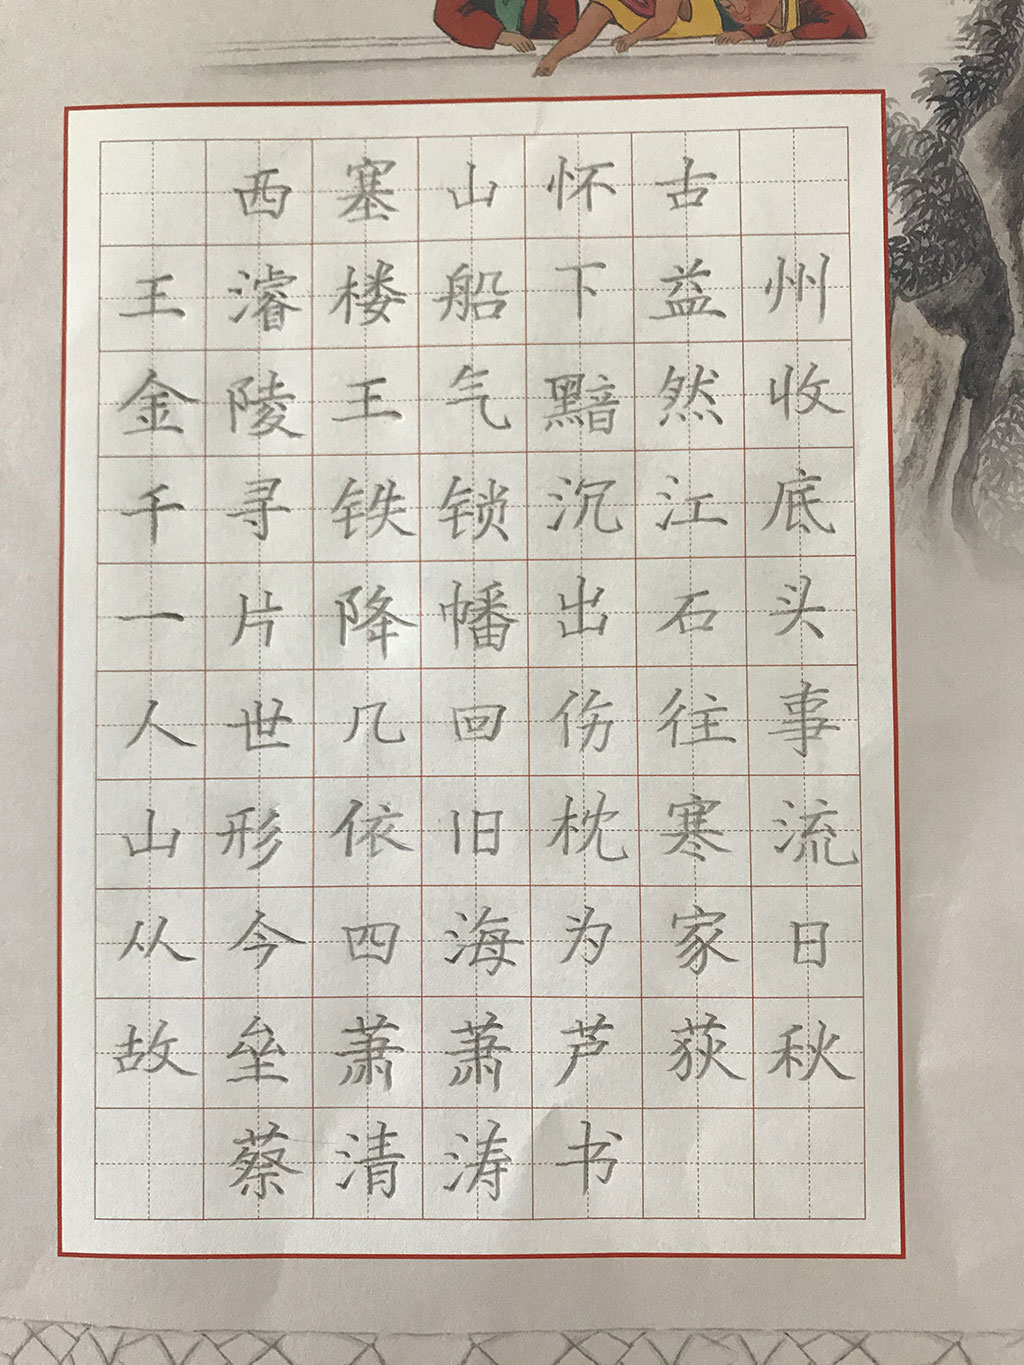 西塞山怀古
王濬楼船下益州
金陵王气黯然收
千寻铁锁沉江底
一片降幡出石头
人世几回伤往事
山形依旧枕寒流
从今四海为家日
故垒萧萧芦荻秋
蔡清涛书